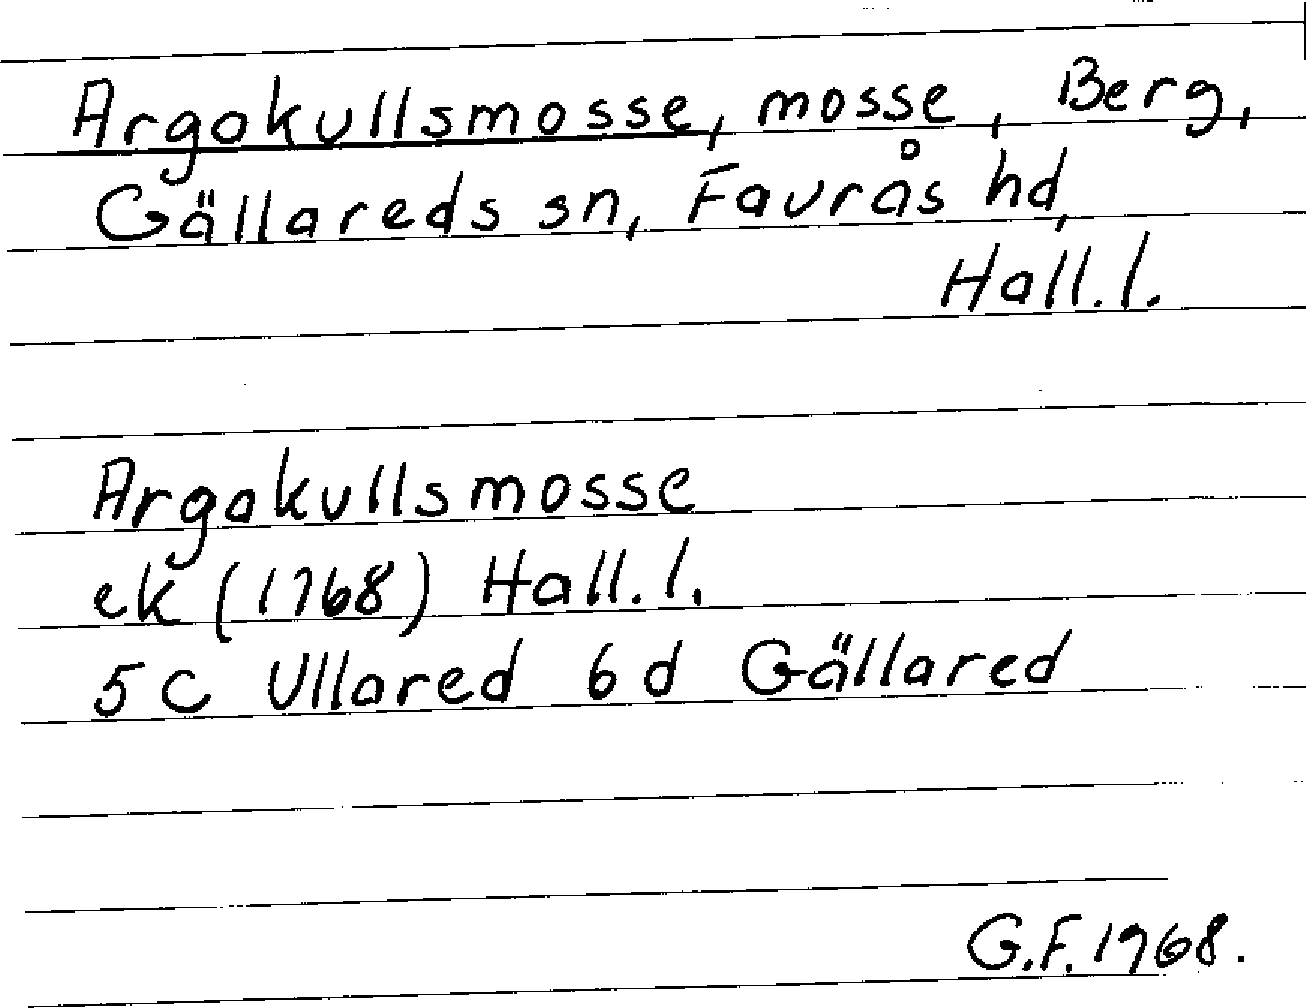 Argokullsmosse, mosse, Berg,
Gällareds sn, Faurås hd,
Hall. l.
Argakullsmosse
ek (1968) Hall. l.
5 C Ullared 6 d Gällared
G.F. 1968.